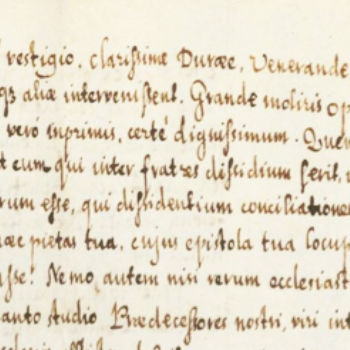 vestigio, clarissime Duraee, Venerande
q3 aliae intervenissent. Grande moliris op
vero inprimis, certè dignissimum. Quem
t eum qui inter fratres dissidium serit,
rum esse, qui dissidentium conciliatione
uae pietas tua, cujus epistola tua locup
asse! Nemo autem nisi rerum ecclesiast
anto studio Praedecessores nostri, viri int